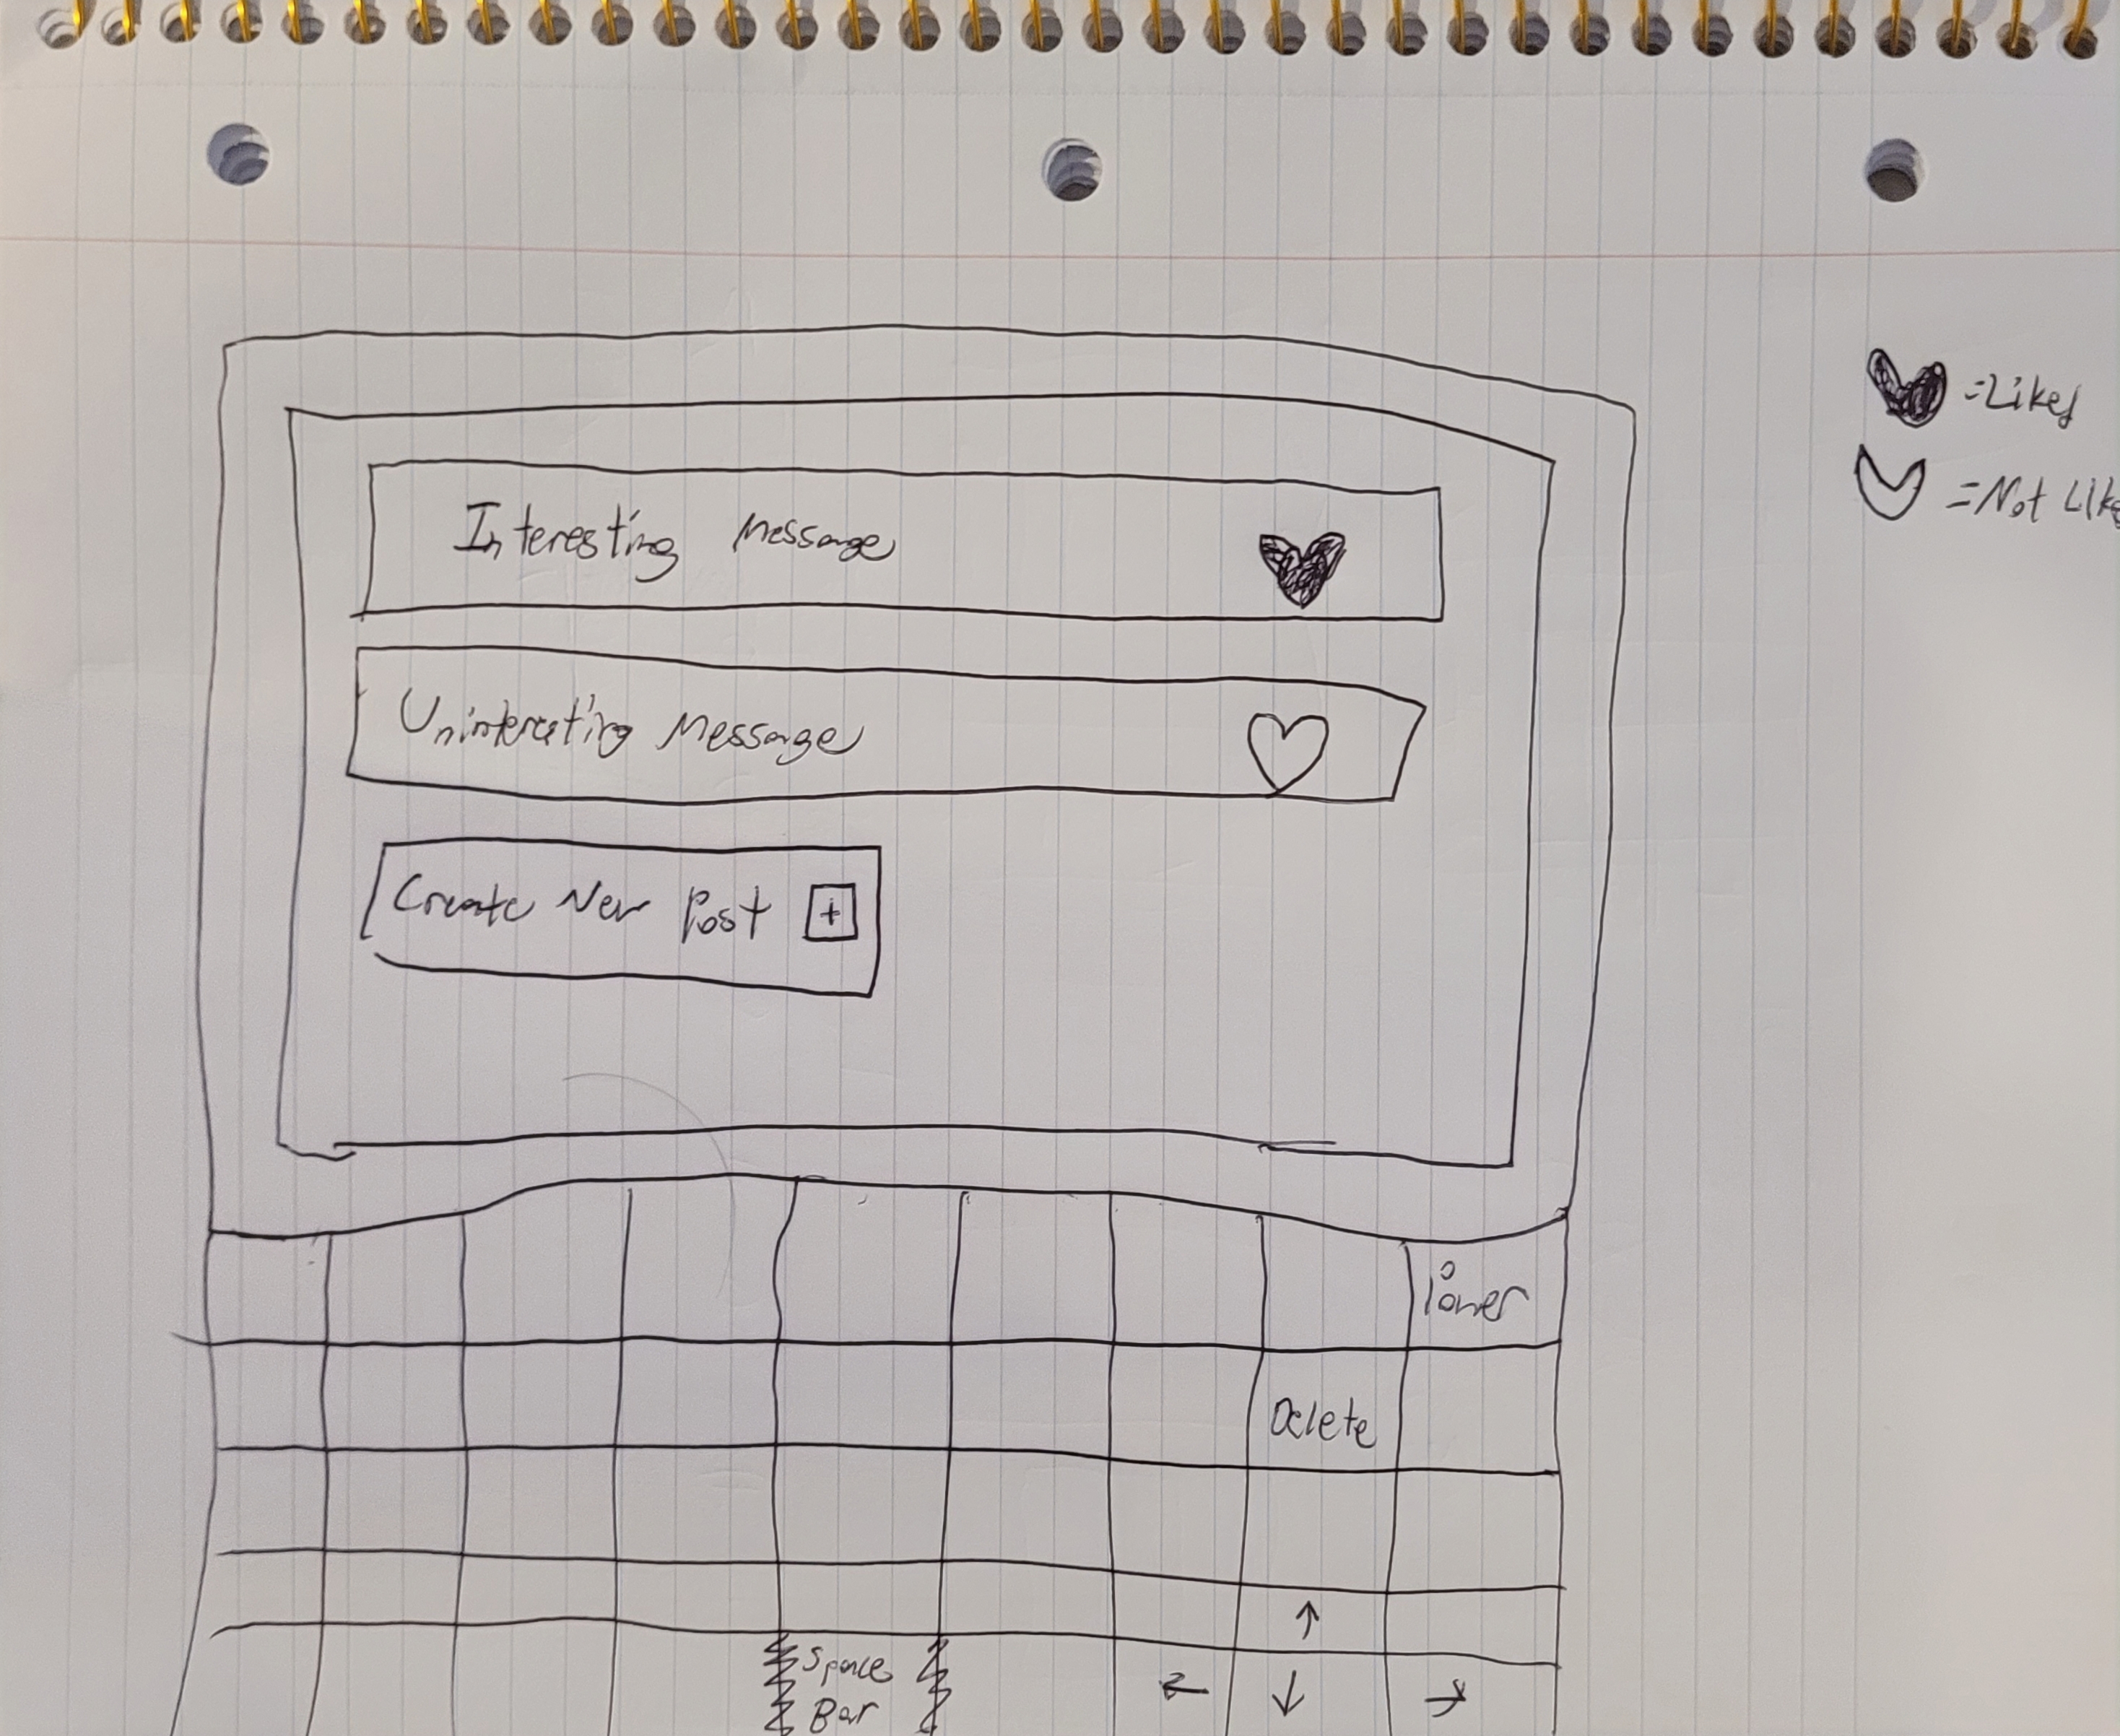 =Liked
=Not Like
Interesting Message
Uninteresting Message
Create New Post +
Power
Delete
↑
Space
Bar
← ↓ →